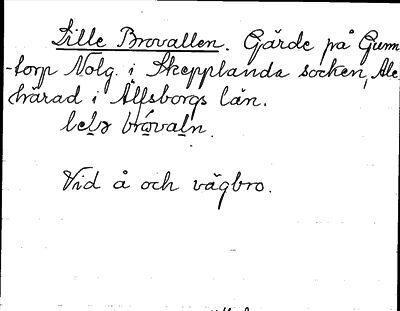 Lille Brovallen. Gärde på Gunn
-torp Nolg. i Skepplanda socken, Ale
härad i Älfsborgs län.
Vid å och vägbro.